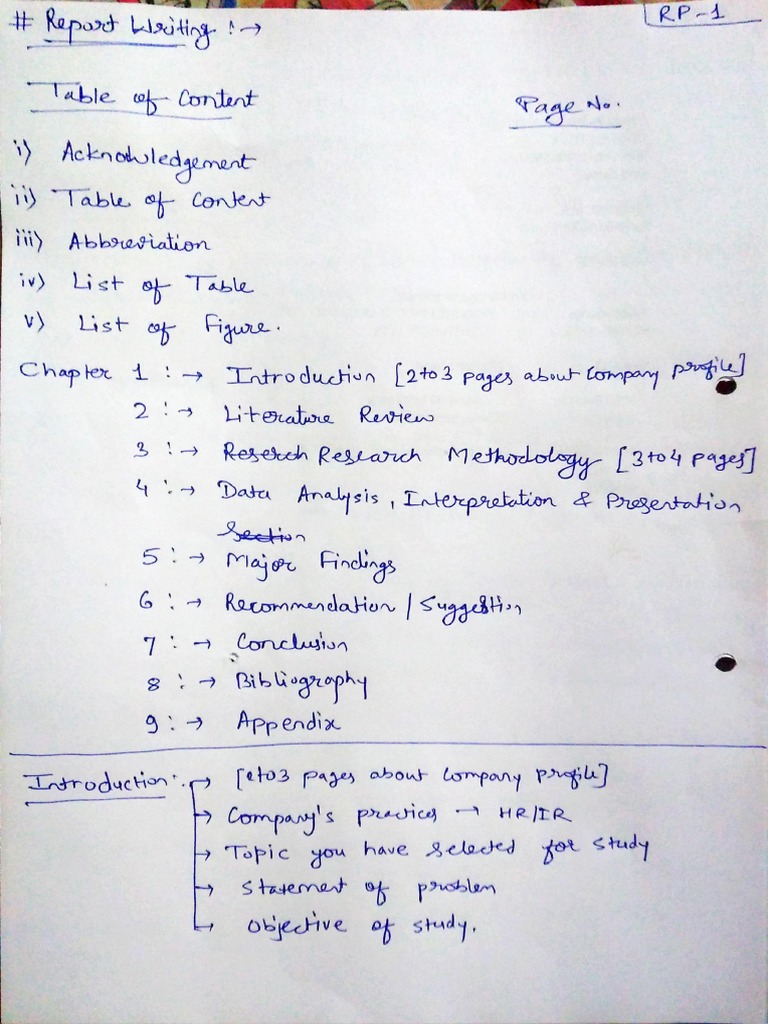 RP-1
# Report Writing :→
Table of Content Page No.
i) Acknowledgement
ii) Table of Content
iii) Abbreviation
iv) List of Table
v) List of Figure.
Chapter 1 :→ Introduction [2 to 3 pages about Company profile]
2 :→ Literature Review
3 :→ Reserch Research Methodology [3 to 4 pages]
4 :→ Data Analysis, Interpretation & Presentation
Section
5 :→ Major Findings
6 :→ Recommendation / Suggestion
7 :→ Conclusion
8 :→ Bibliography
9 :→ Appendix
Introduction :→ [2 to 3 pages about Company profile]
→ Company's practices → HR/IR
→ Topic you have selected for study
→ Statement of problem
→ Objective of study.